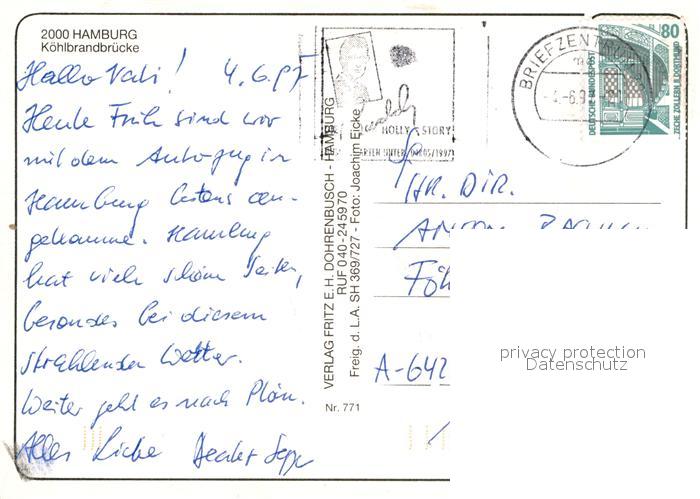 2000 HAMBURG
Köhlbrandbrücke
Hallo Vati! 4.6.97
Heute Früh sind wir
mit dem Autozug in
Hamburg bestens an-
gekommen. Hamburg
hat viele schöne Seiten,
besonders bei diesem
strahlenden Wetter.
Weiter geht es nach Plön.
Alles Liebe
VERLAG FRITZ E. H. DOHRENBUSCH - HAMBURG
RUF 040 - 24 59 70
Freig. d. L.A. SH 369/727 - Foto: Joachim Eicke
Nr. 771
HOLLY STORY
BRIEFZENTRUM
80
DEUTSCHE BUNDESPOST
ZECHE ZOLLERN II, DORTMUND
HR. DIR.
A-642
privacy protection
Datenschutz